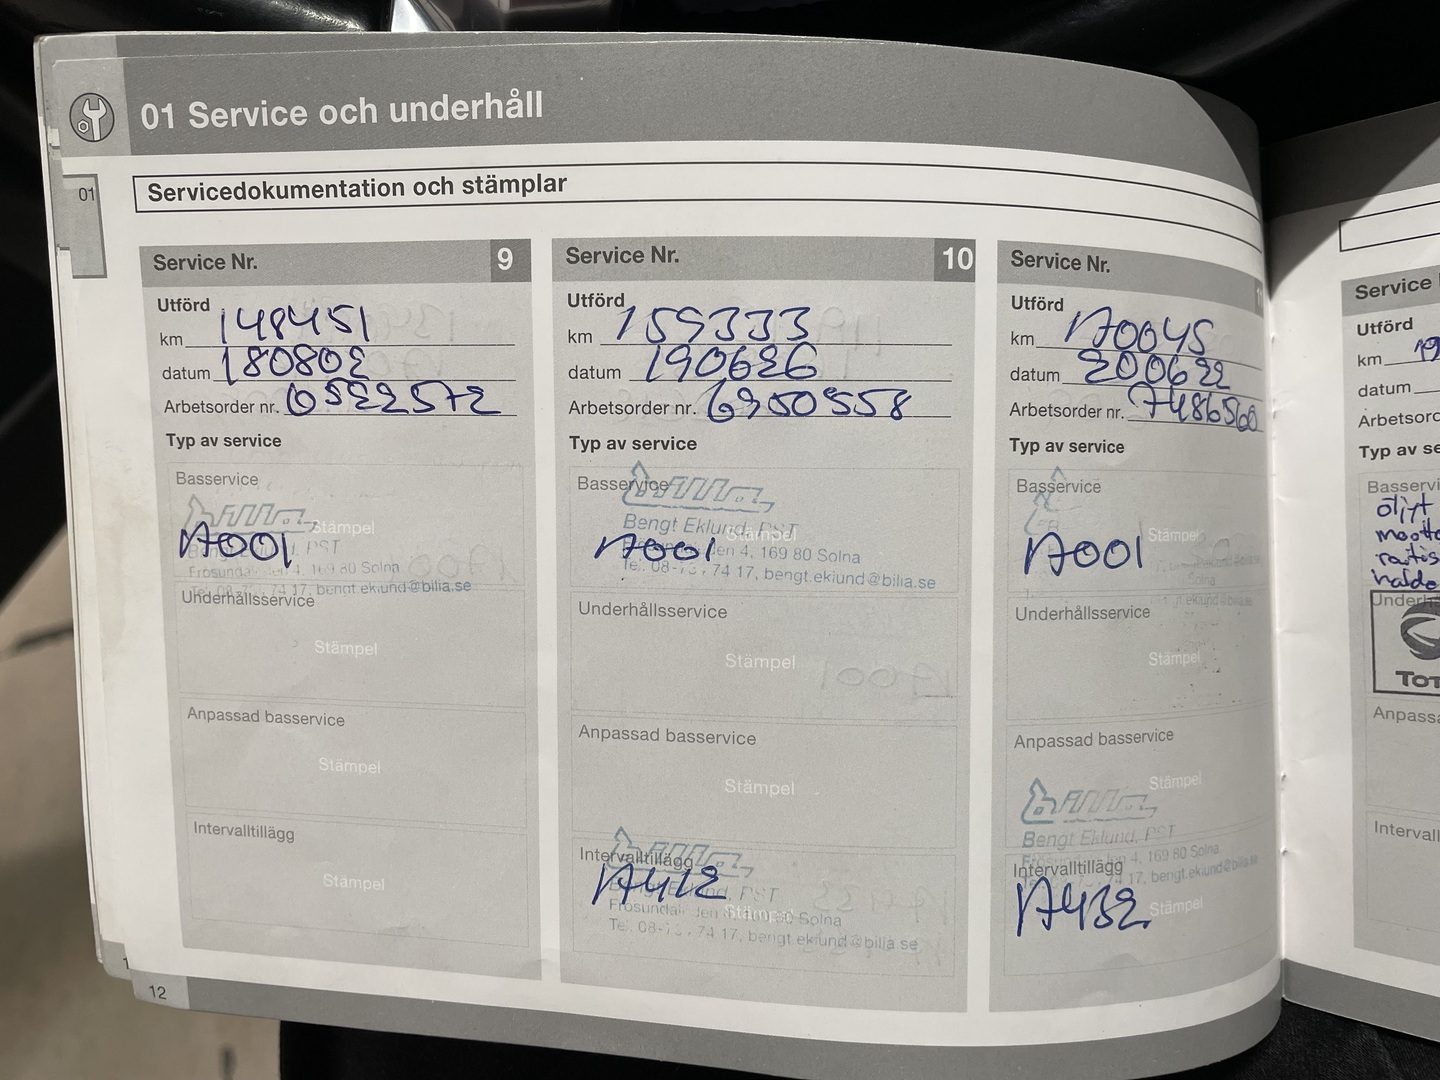 01 Service och underhåll
01
Servicedokumentation och stämplar
Service Nr. 9
Utförd
km 148451
datum 180802
Arbetsorder nr. 6522572
Typ av service
Basservice
bilia
Stämpel
A001
PST
Frösunda 4, 169 80 Solna
74 17, bengt.eklund@bilia.se
Underhållsservice
Stämpel
Anpassad basservice
Stämpel
Intervalltillägg
Stämpel
Service Nr. 10
Utförd
km 159333
datum 190626
Arbetsorder nr. 6900558
Typ av service
Basservice
bilia
Bengt Eklund, PST
Stämpel
A001
4, 169 80 Solna
Tel. 08- 74 17, bengt.eklund@bilia.se
Underhållsservice
Stämpel
Anpassad basservice
Stämpel
Intervalltillägg
bilia
A412
PST
Stämpel
Frösunda Solna
Tel. 08- 74 17, bengt.eklund@bilia.se
Service Nr.
Utförd
km 170045
datum 200622
Arbetsorder nr. 7486560
Typ av service
Basservice
Stämpel
A001
Solna
Underhållsservice
Stämpel
Anpassad basservice
Stämpel
bilia
Bengt Eklund, PST
4, 169 80 Solna
74 17, bengt.eklund@bilia.se
Intervalltillägg
A432
Stämpel
12
Service
Utförd
km 19
datum
Arbetsor
Typ av se
Basservi
öljyt
Underh
TOT
Anpass
Intervall